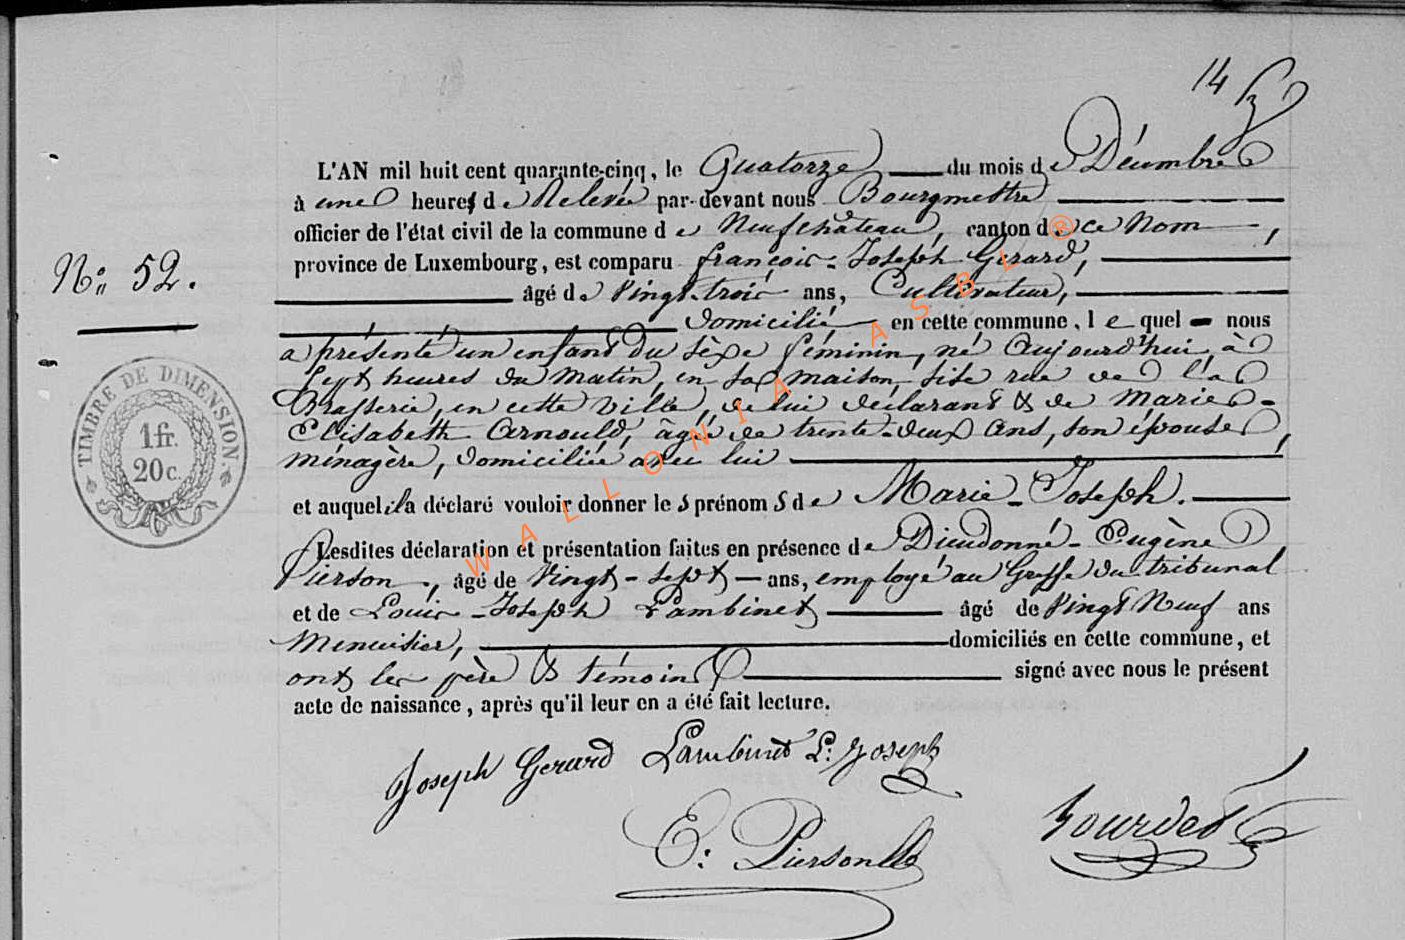 14
L'AN mil huit cent quarante-cinq, le Quatorze du mois de Décembre
à une heures de Relevée par-devant nous Bourgmestre
officier de l'état civil de la commune de Neufchâteau, canton de ce Nom,
province de Luxembourg, est comparu françois-Joseph Gerard,
N° 52.
âgé de Vingt-trois ans, Cultivateur,
domicilié en cette commune, lequel nous
a présenté un enfant du sèxe féminin, né aujourd'hui, à
Sept heures du matin, en sa maison, sise rue de la
Brasserie, en cette Ville, de lui déclarant & de Marie-
Elisabeth Arnould, âgée de trente-deux ans, son épouse,
ménagère, domiciliée avec lui
et auquel il a déclaré vouloir donner les prénoms de Marie-Joseph.
Lesdites déclaration et présentation faites en présence de Dieudonné-Eugène
Pierson, âgé de Vingt-sept ans, employé au Greffe du tribunal
et de Louis-Joseph Lambinet âgé de Vingt Neuf ans
Menuisier, domiciliés en cette commune, et
ont les père & témoins signé avec nous le présent
acte de naissance, après qu'il leur en a été fait lecture.
TIMBRE DE DIMENSION.
1 fr.
20 c.
Joseph Gerard Lambinet L: Joseph
E: Pierson
Bourdet
WALLONIA ASBL ®